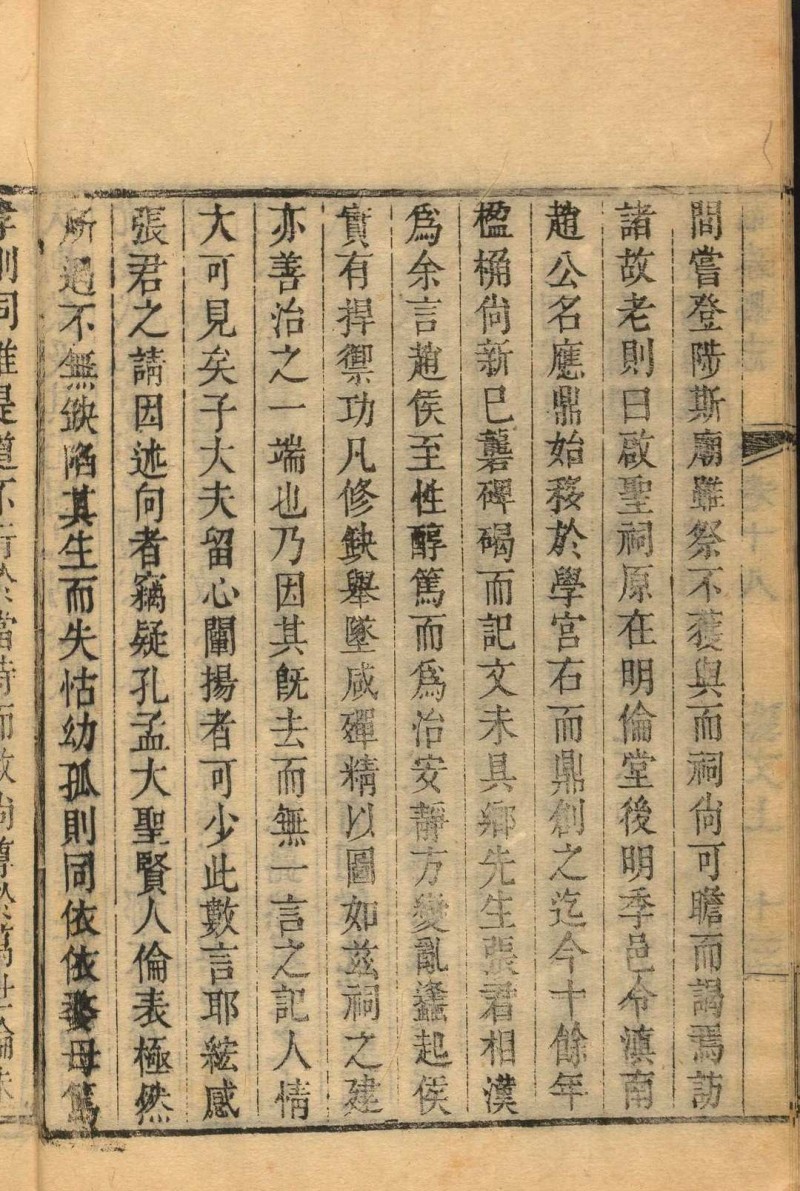 間嘗登陟斯廟雖祭不獲與而祠尙可瞻而謁焉訪
諸故老則曰啟聖祠原在明倫堂後明季邑令滇南
趙公名應鼎始移於學宮右而鼎創之迄今十餘年
楹桷尙新已礱碑碣而記文未具鄉先生張君相漢
爲余言趙侯至性醇篤而爲治安靜方變亂蠭起侯
實有捍禦功凡修缺舉墜咸殫精以圖如兹祠之建
亦善治之一端也乃因其旣去而無一言之記人情
大可見矣子大夫留心闡揚者可少此數言耶絃感
張君之請因述向者竊疑孔孟大聖賢人倫表極然
所遇不無缺陷其生而失怙幼孤則同依依嫠母篤